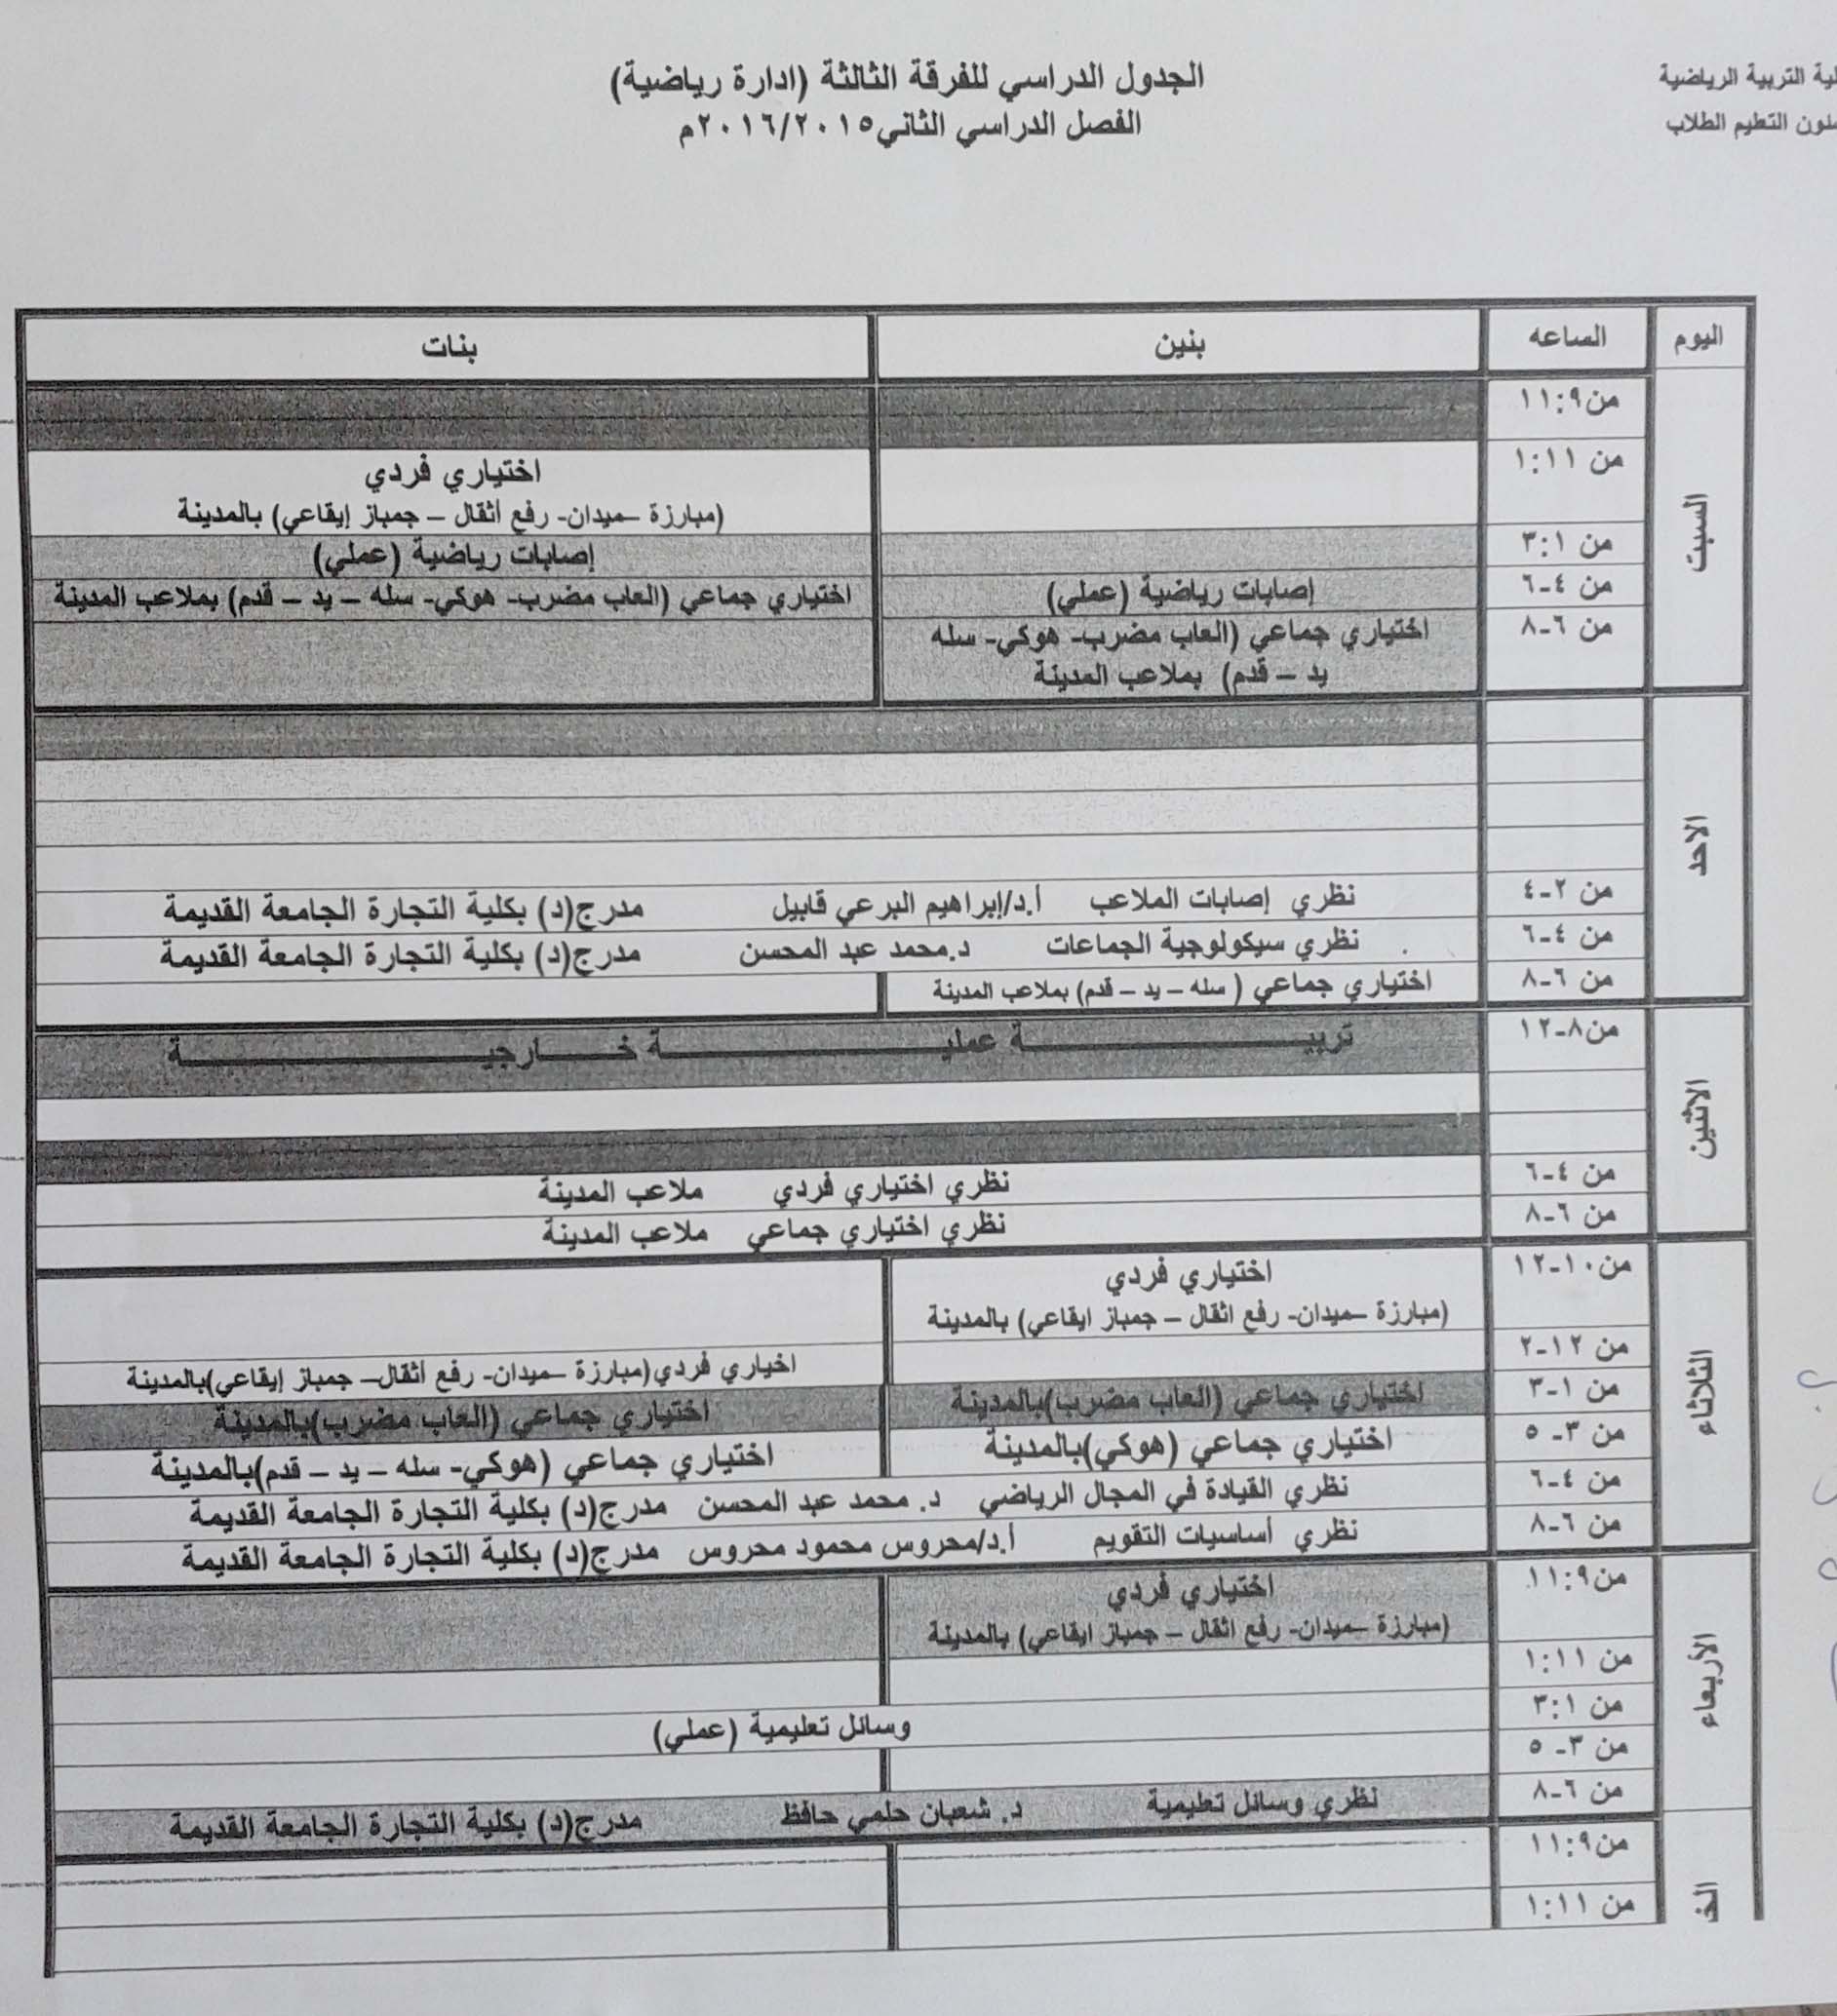 لية التربية الرياضية
التعليم الطلاب
الجدول الدراسي للفرقة الثالثة (ادارة رياضية)
الفصل الدراسي الثاني٢٠١٦/٢٠١٥م
اليوم الساعه بنين بنات
السبت
من٩:١١
من ١:١١ اختياري فردي
(مبارزة –ميدان- رفع أثقال – جمباز إيقاعي) بالمدينة
من ٣:١ إصابات رياضية (عملي)
من ٤-٦ إصابات رياضية (عملي) اختياري جماعي (العاب مضرب- هوكي- سله – يد – قدم) بملاعب المدينة
من ٦-٨ اختياري جماعي (العاب مضرب- هوكي- سله
يد – قدم) بملاعب المدينة
الاحد
من ٢-٤ نظري إصابات الملاعب أ.د/إبراهيم البرعي قابيل مدرج(د) بكلية التجارة الجامعة القديمة
من ٤-٦ نظري سيكولوجية الجماعات د.محمد عبد المحسن مدرج(د) بكلية التجارة الجامعة القديمة
من ٦-٨ اختياري جماعي ( سله – يد – قدم) بملاعب المدينة
الاثنين
من٨-١٢ تربيـــــة عمليـــــة خـــارجيـــــة
من ٤-٦ نظري اختياري فردي ملاعب المدينة
من ٦-٨ نظري اختياري جماعي ملاعب المدينة
الثلاثاء
من١٠-١٢ اختياري فردي
(مبارزة –ميدان- رفع اثقال – جمباز ايقاعي) بالمدينة
من ١٢-٢ اخياري فردي(مبارزة –ميدان- رفع أثقال– جمباز إيقاعي)بالمدينة
من ١-٣ اختياري جماعي (العاب مضرب)بالمدينة اختياري جماعي (العاب مضرب)بالمدينة
من ٣- ٥ اختياري جماعي (هوكي)بالمدينة اختياري جماعي (هوكي- سله – يد – قدم)بالمدينة
من ٤-٦ نظري القيادة في المجال الرياضي د. محمد عبد المحسن مدرج(د) بكلية التجارة الجامعة القديمة
من ٦-٨ نظري أساسيات التقويم أ.د/محروس محمود محروس مدرج(د) بكلية التجارة الجامعة القديمة
الأربعاء
من٩:١١ اختياري فردي
(مبارزة –ميدان- رفع اثقال – جمباز ايقاعي) بالمدينة
من ١:١١
من ٣:١ وسائل تعليمية (عملي)
من ٣- ٥
من ٦-٨ نظري وسائل تعليمية د. شعبان حلمي حافظ مدرج(د) بكلية التجارة الجامعة القديمة
من٩:١١
من ١:١١